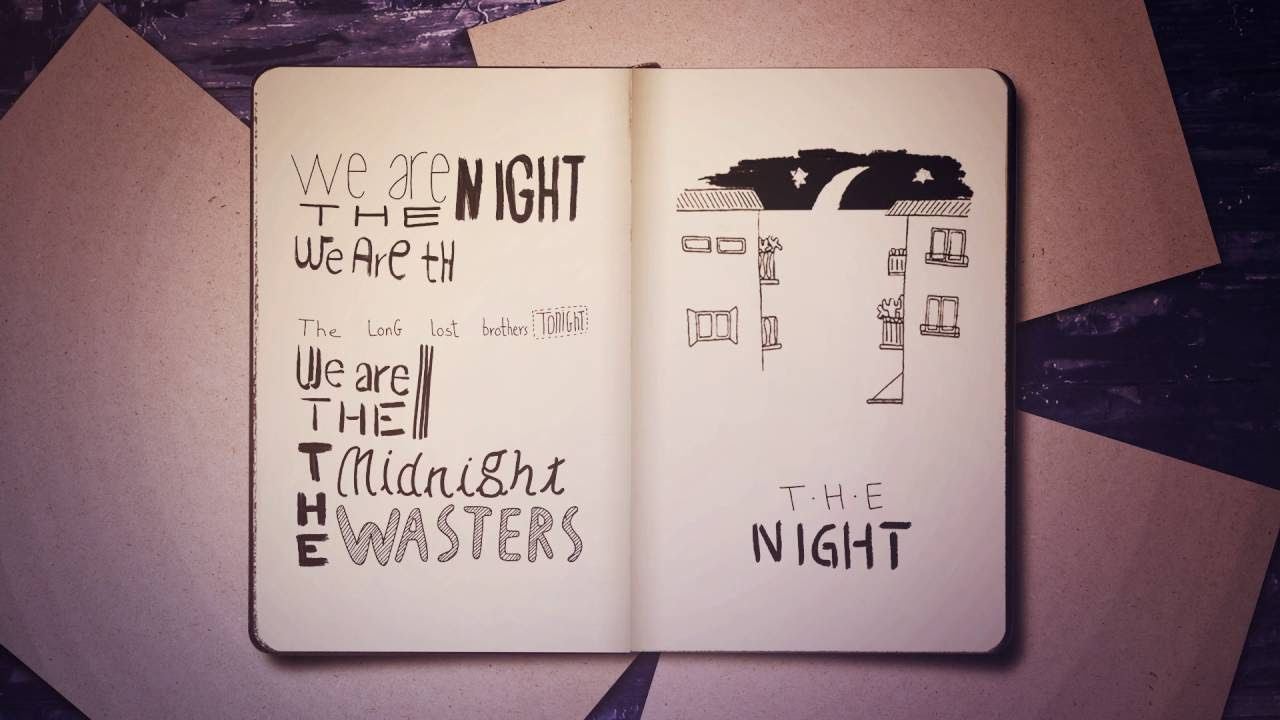 We are NIGHT
THE
We Are tH
The LonG lost brothers TONIGHT
We are
THE
THE Midnight
WASTERS
T·H·E
NIGHT